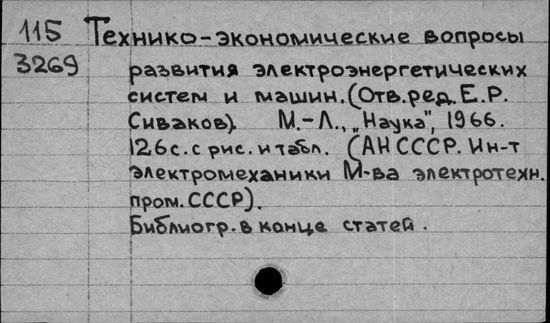 115 Технико-экономические вопросы
3269 развития электроэнергетических
систем и машин. (Отв. ред. Е.Р.
Сиваков). М.-Л., „Наука", 1966.
126 с. с рис. и табл. (АН СССР. Ин-т
электромеханики М-ва электротехн.
пром. СССР).
Библиогр. в конце статей.